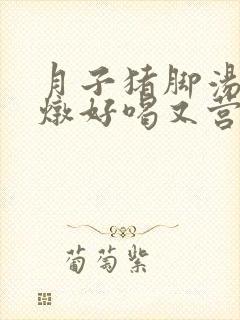 月子猪脚汤
燉好喝又营
葡萄紫